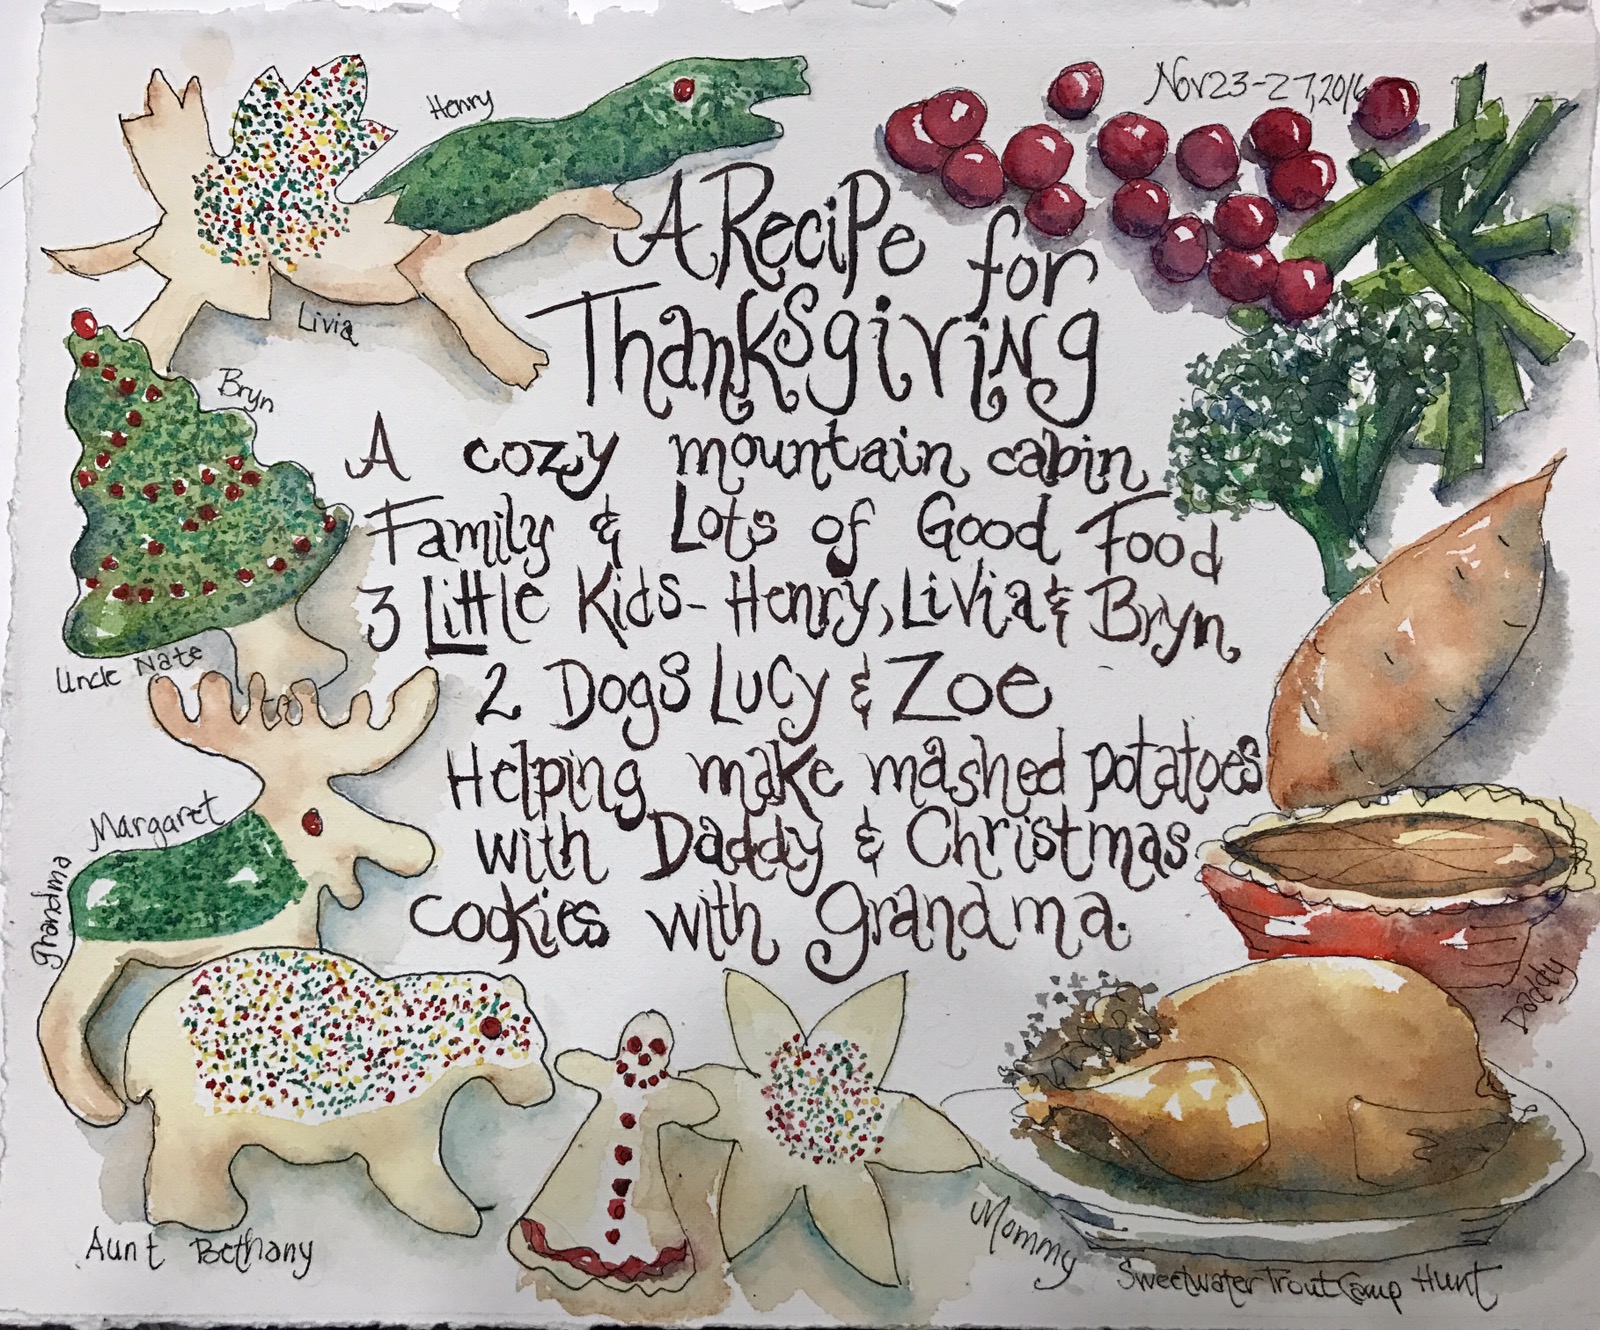 Henry
Nov 23-27, 2016
A Recipe for
Thanksgiving
Livia
Bryn
A cozy mountain cabin
Family & Lots of Good Food
3 Little Kids- Henry, Livia & Bryn
2 Dogs Lucy & Zoe
Helping make mashed potatoes
with Daddy & Christmas
cookies with Grandma.
Uncle Nate
Margaret
Grandma
Aunt Bethany
Daddy
Mommy
Sweetwater Trout Camp Hunt